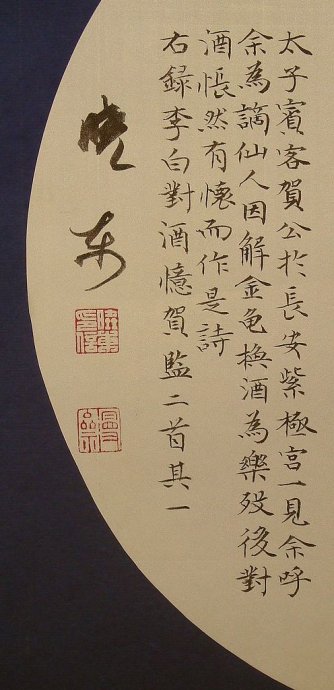 太子賓客賀公於長安紫極宮一見余呼
余為謫仙人因解金龟換酒為樂歿後對
酒悵然有懷而作是詩
右録李白對酒憶賀監二首其一
曉東